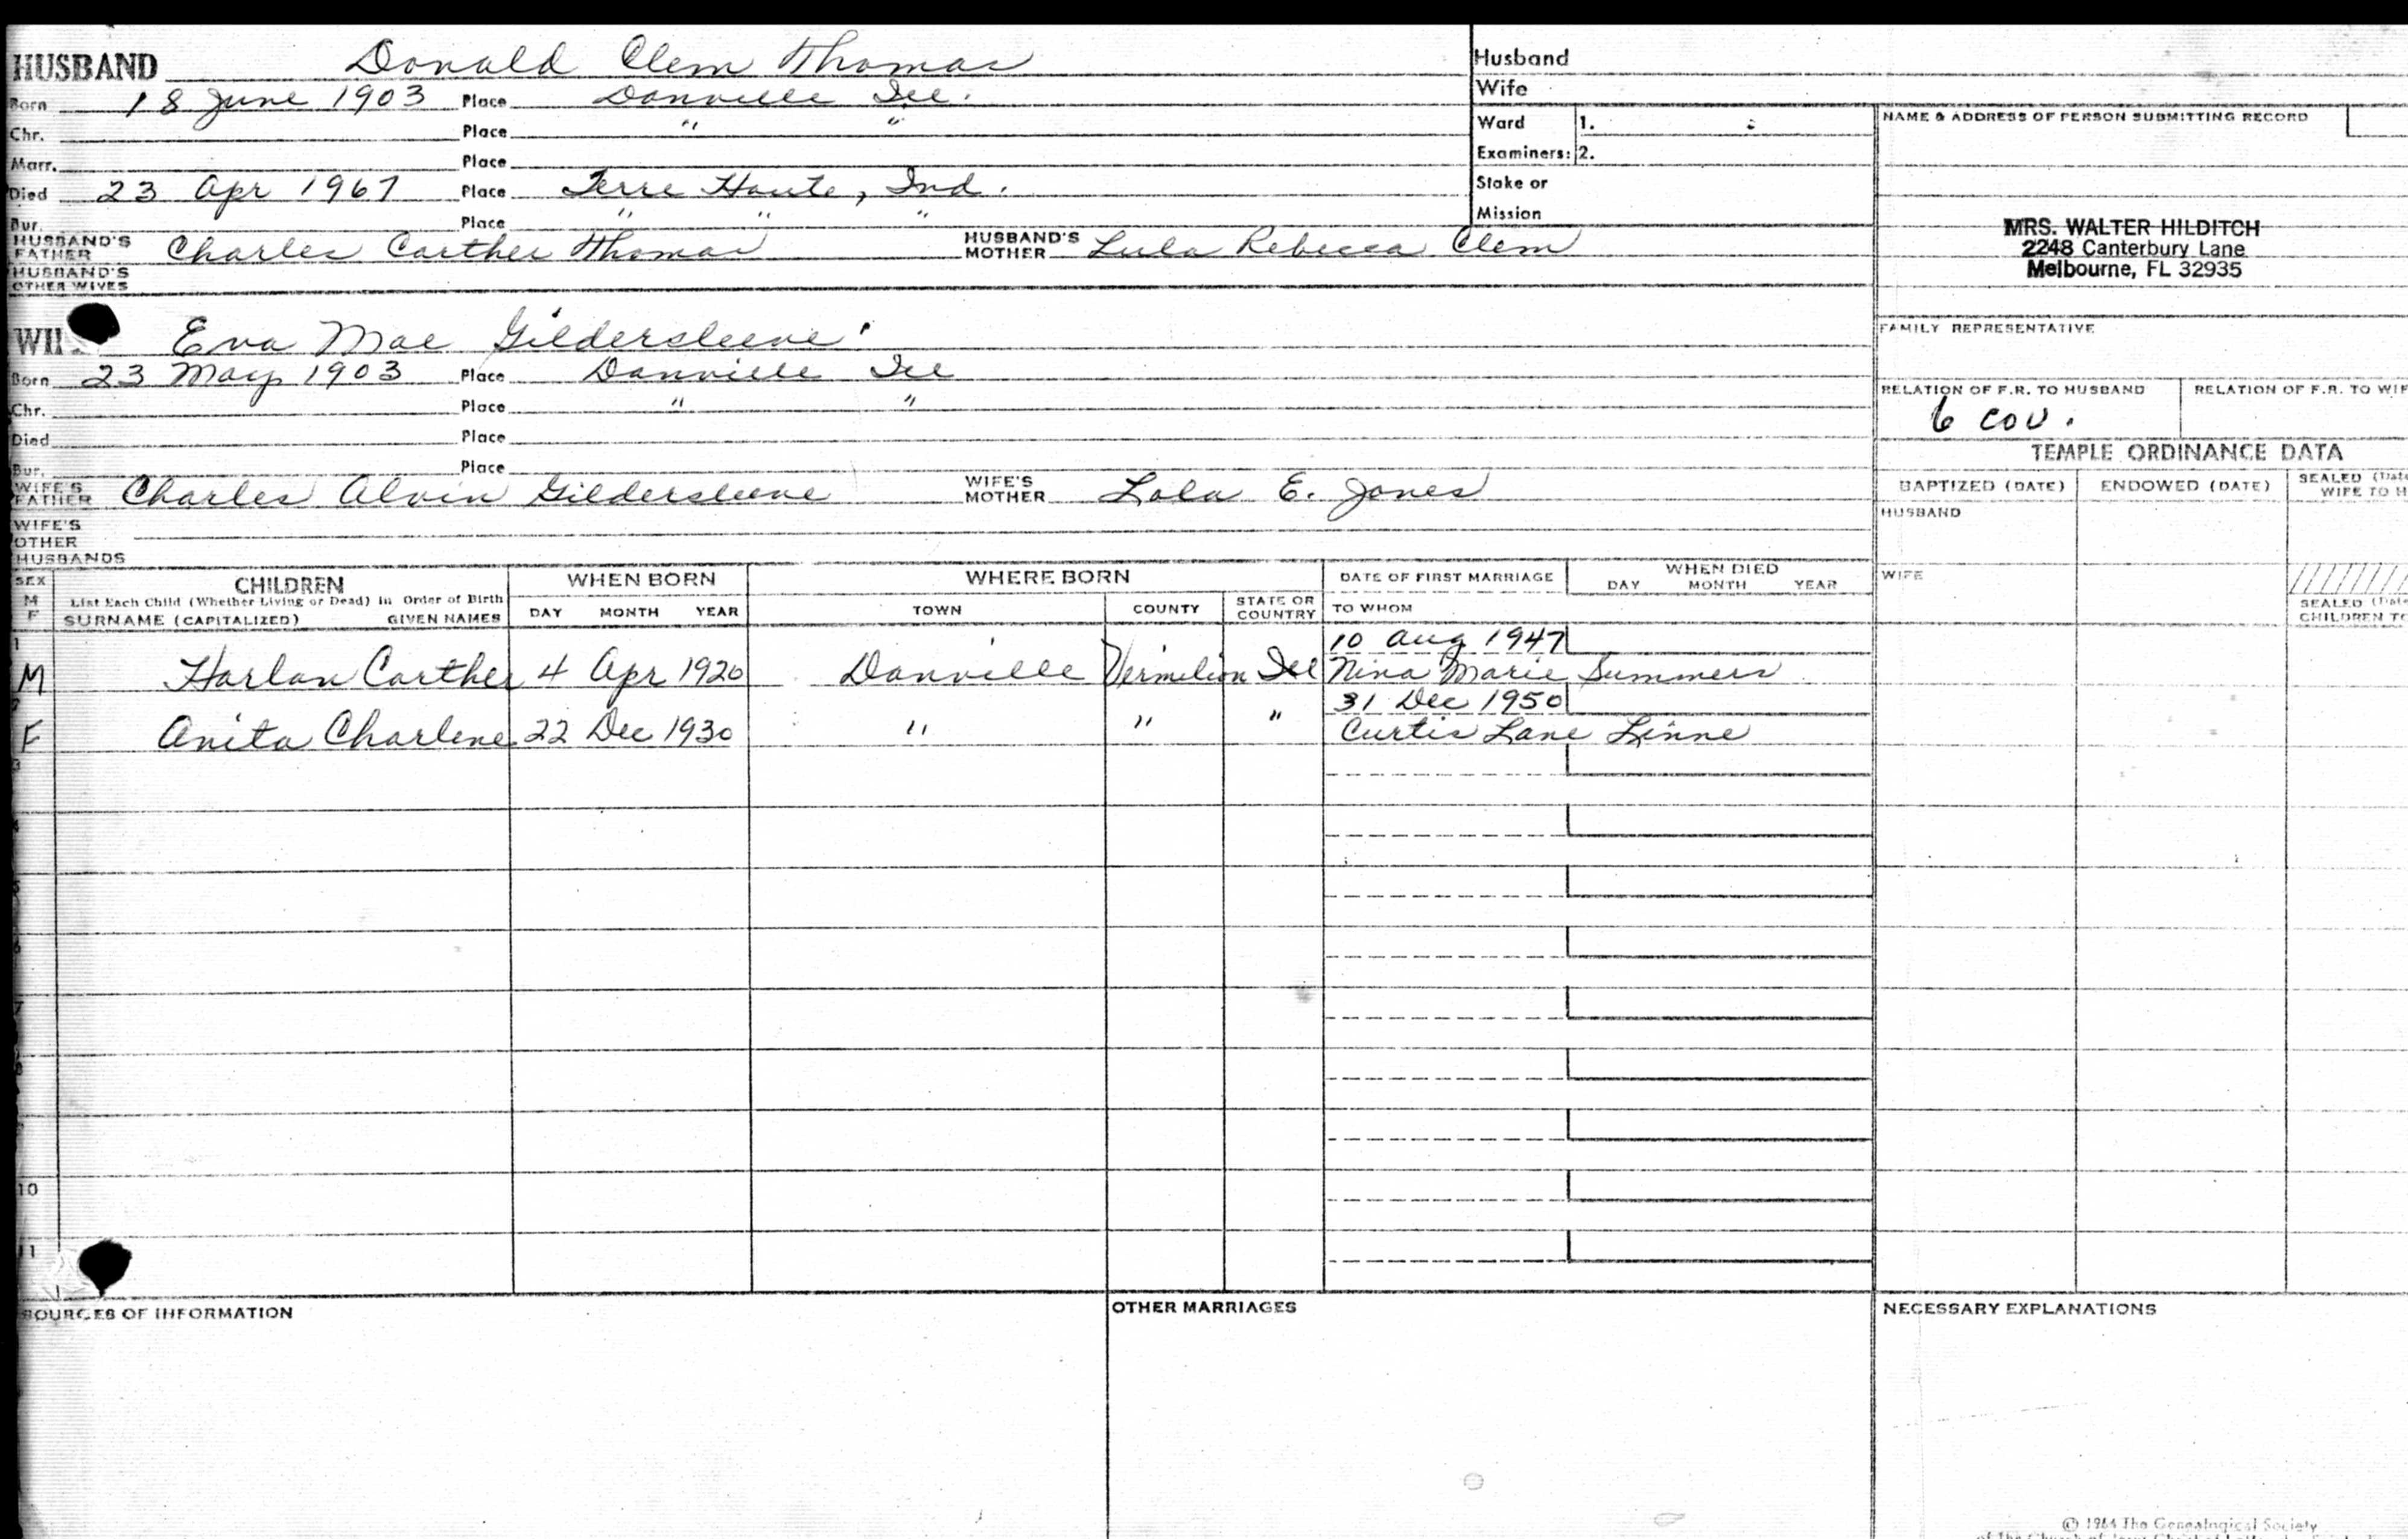 HUSBAND Donald Clem Thomas
Born 18 June 1903 Place Danville Ill.
Chr. Place " "
Marr. Place
Died 23 Apr 1967 Place Terre Haute, Ind.
Bur. Place " " "
HUSBAND'S FATHER Charles Carther Thomas HUSBAND'S MOTHER Lula Rebecca Clem
HUSBAND'S OTHER WIVES
Husband
Wife
Ward 1.
Examiners: 2.
Stake or
Mission
NAME & ADDRESS OF PERSON SUBMITTING RECORD
MRS. WALTER HILDITCH
2248 Canterbury Lane
Melbourne, FL 32935
Eva Mae Gildersleeve
Born 23 May 1903 Place Danville Ill
Chr. Place " "
Died Place
Bur. Place
WIFE'S FATHER Charles Alvin Gildersleeve WIFE'S MOTHER Lola E. Jones
WIFE'S
OTHER
HUSBANDS
FAMILY REPRESENTATIVE
RELATION OF F.R. TO HUSBAND RELATION OF F.R. TO
6 cou.
TEMPLE ORDINANCE DATA
BAPTIZED (DATE) ENDOWED (DATE) SEALED (Date
WIFE TO H
HUSBAND
WIFE
SEALED (Date
CHILDREN TO
SEX M F CHILDREN WHEN BORN WHERE BORN DATE OF FIRST MARRIAGE WHEN DIED
List Each Child (Whether Living or Dead) in Order of Birth DAY MONTH YEAR
SURNAME (CAPITALIZED) GIVEN NAMES DAY MONTH YEAR TOWN COUNTY STATE OR COUNTRY TO WHOM
1 10 Aug 1947
M Harlan Carther 4 Apr 1926 Danville Vermilion Ill Nina Marie Summers
2 31 Dec 1950
F Anita Charlene 22 Dec 1930 " " " Curtis Lane Linne
3
4
5
6
7
10
11
SOURCES OF INFORMATION OTHER MARRIAGES NECESSARY EXPLANATIONS
© 1964 The Genealogical Society